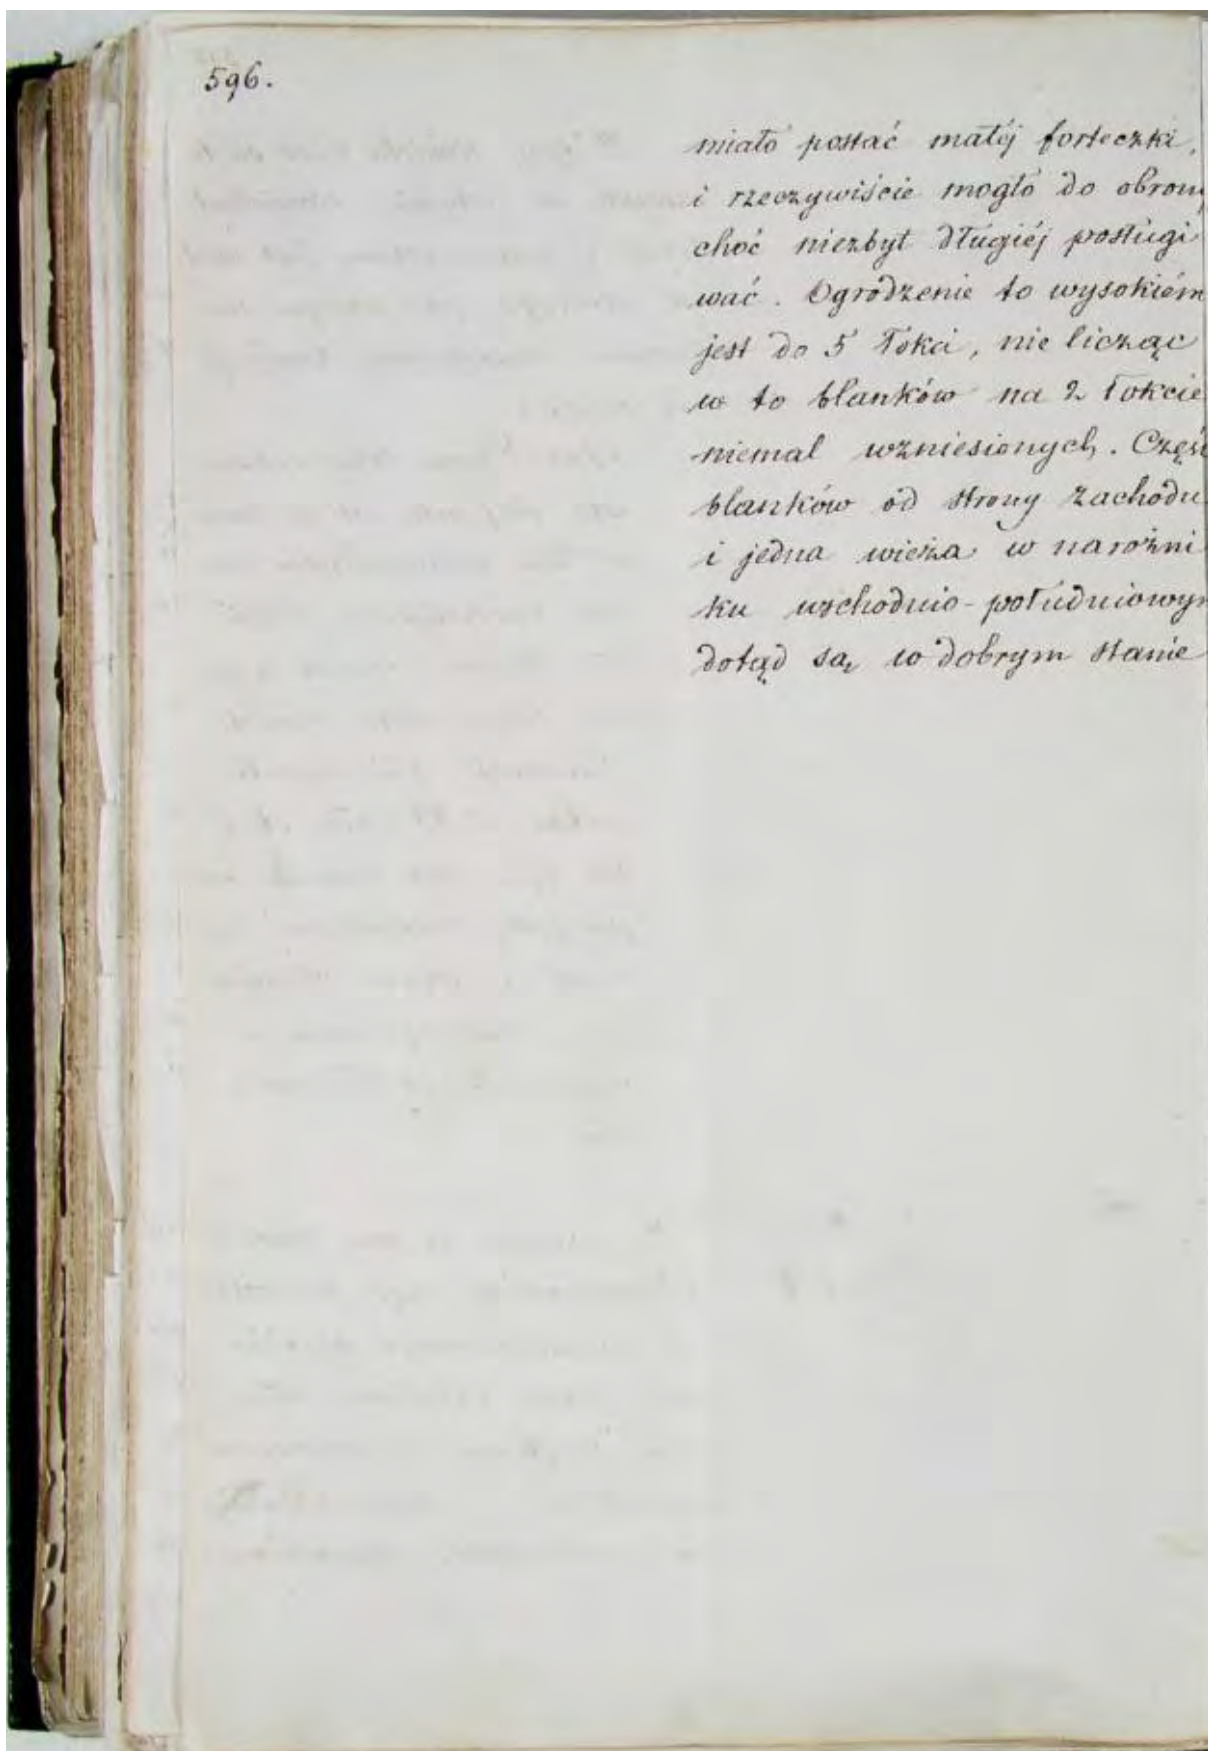 596.
miało postać małéj forteczki,
i rzeczywiście mogło do obrony
choć niezbyt długiéj posługi
wać. Ogrodzenie to wysokiém
jest do 5 łokci, nie licząc
w to blanków na 2 łokcie
niemal wzniesionych. Część
blanków od strony zachodu
i jedna wieża w narożni
ku wschodnio-południowym
dotąd są w dobrym stanie